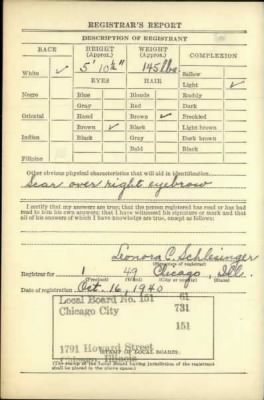 REGISTRAR'S REPORT
DESCRIPTION OF REGISTRANT
RACE HEIGHT (Approx.) WEIGHT (Approx.) COMPLEXION
White ✓ 5' 10½" 145 lbs. Sallow
EYES HAIR Light ✓
Negro Blue Blonde Ruddy
Gray Red Dark
Oriental Hazel Brown ✓ Freckled
Brown ✓ Black Light brown
Indian Black Gray Dark brown
Bald Black
Filipino
Other obvious physical characteristics that will aid in identification
Scar over right eyebrow
I certify that my answers are true; that the person registered has read or has had
read to him his own answers; that I have witnessed his signature or mark and that
all of his answers of which I have knowledge are true, except as follows:
Leonora C. Schlesinger
(Signature of registrar)
Registrar for 1 49 Chicago, Ill.
(Precinct) (Ward) (City or county) (State)
Date of registration Oct. 16, 1940
Local Board No. 151 61
Chicago City 731
151
1791 Howard Street
Chicago, Illinois
(STAMP OF LOCAL BOARD)
(The stamp of the Local Board having jurisdiction of the registrant
shall be placed in the above space.)